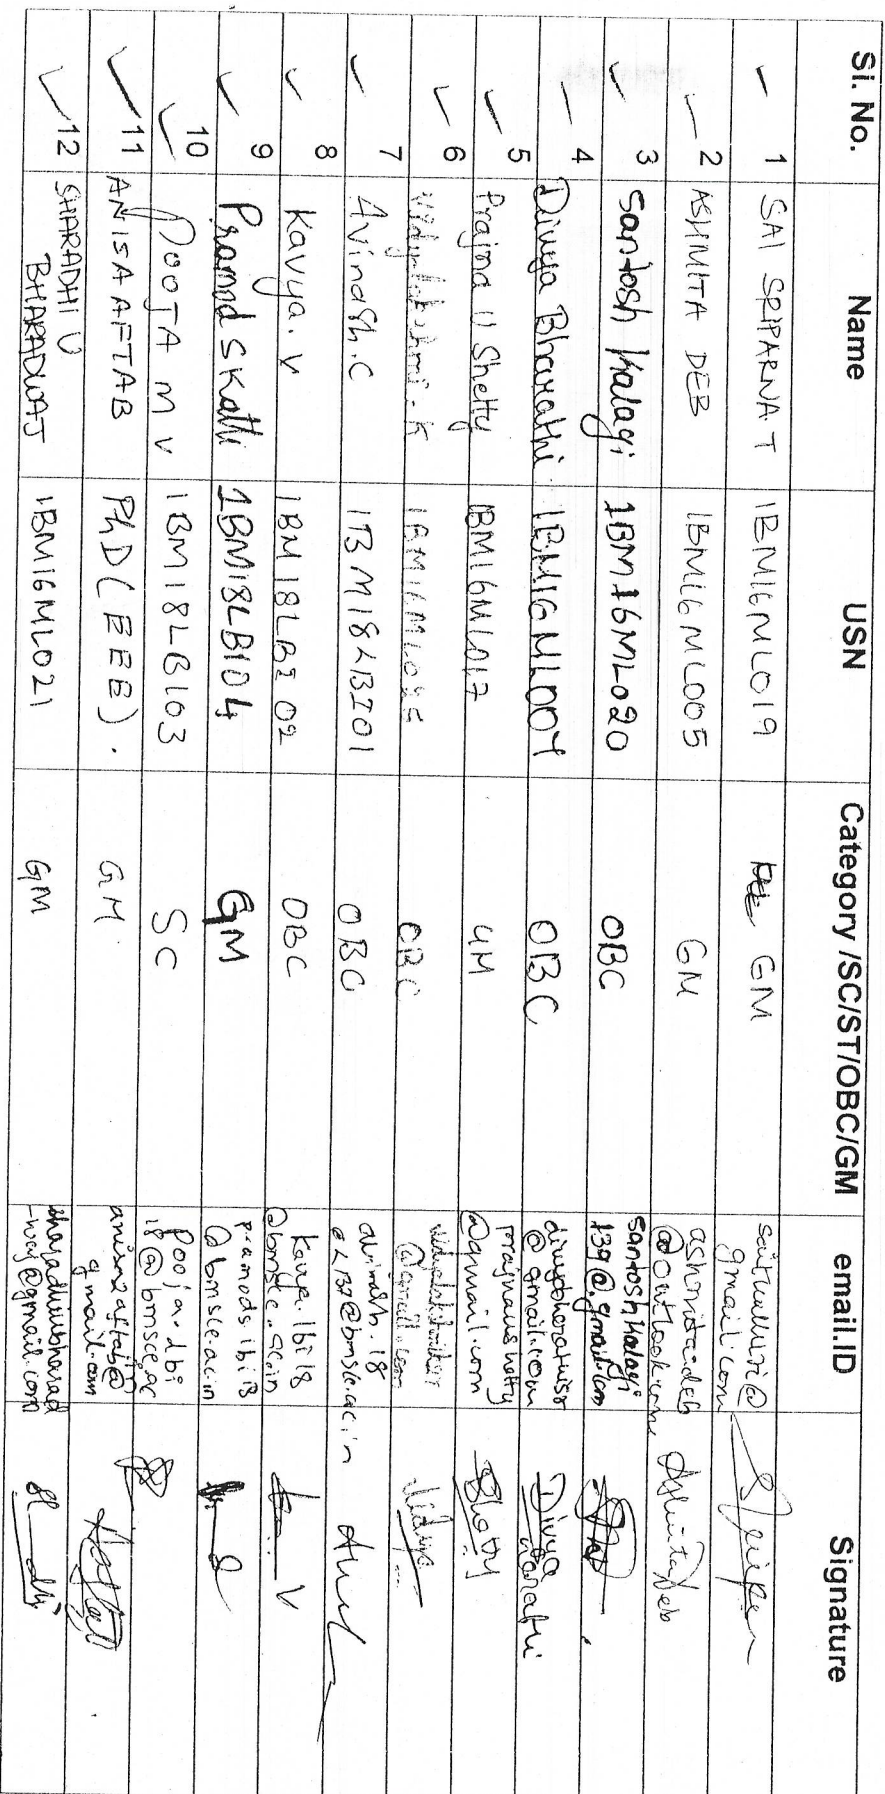 Si. No. Name USN Category /SC/ST/OBC/GM email.ID Signature
1 SAI SRIPARNA T 1BM16ML019 GM saitualluri@
gmail.com
2 ASHMITA DEB 1BM16ML005 GM ashmitadeb
@outlook.com Ashmita Deb
3 Santosh Kalagi 1BM16ML020 OBC santoshkalagi
139@gmail.com
4 Divya Bharathi 1BM16ML007 OBC
@gmail.com Divya
Bharathi
5 Prajna U Shetty 1BM16ML017 GM prajnaushetty
@gmail.com Shetty
6 Vidyalakshmi. K OBC
@gmail.com Vidya
7 Avinash.C 1BM18LBI01 OBC avinash.18
@bmsce.ac.in
8 Kavya. V 1BM18LBI02 OBC kavya.lbi18
@bmsce.ac.in
9 Pramod S Katti 1BM18LBI04 GM pramods.lbi18
@bmsce.ac.in
10 POOJA M V 1BM18LBI03 SC pooja.lbi
18@bmsce.ac
11 ANISA AFTAB PhD(EEE). GM anisa2aftab@
gmail.com
12 SHARADHI U
BHARADWAJ 1BM16ML021 GM
-waj@gmail.com